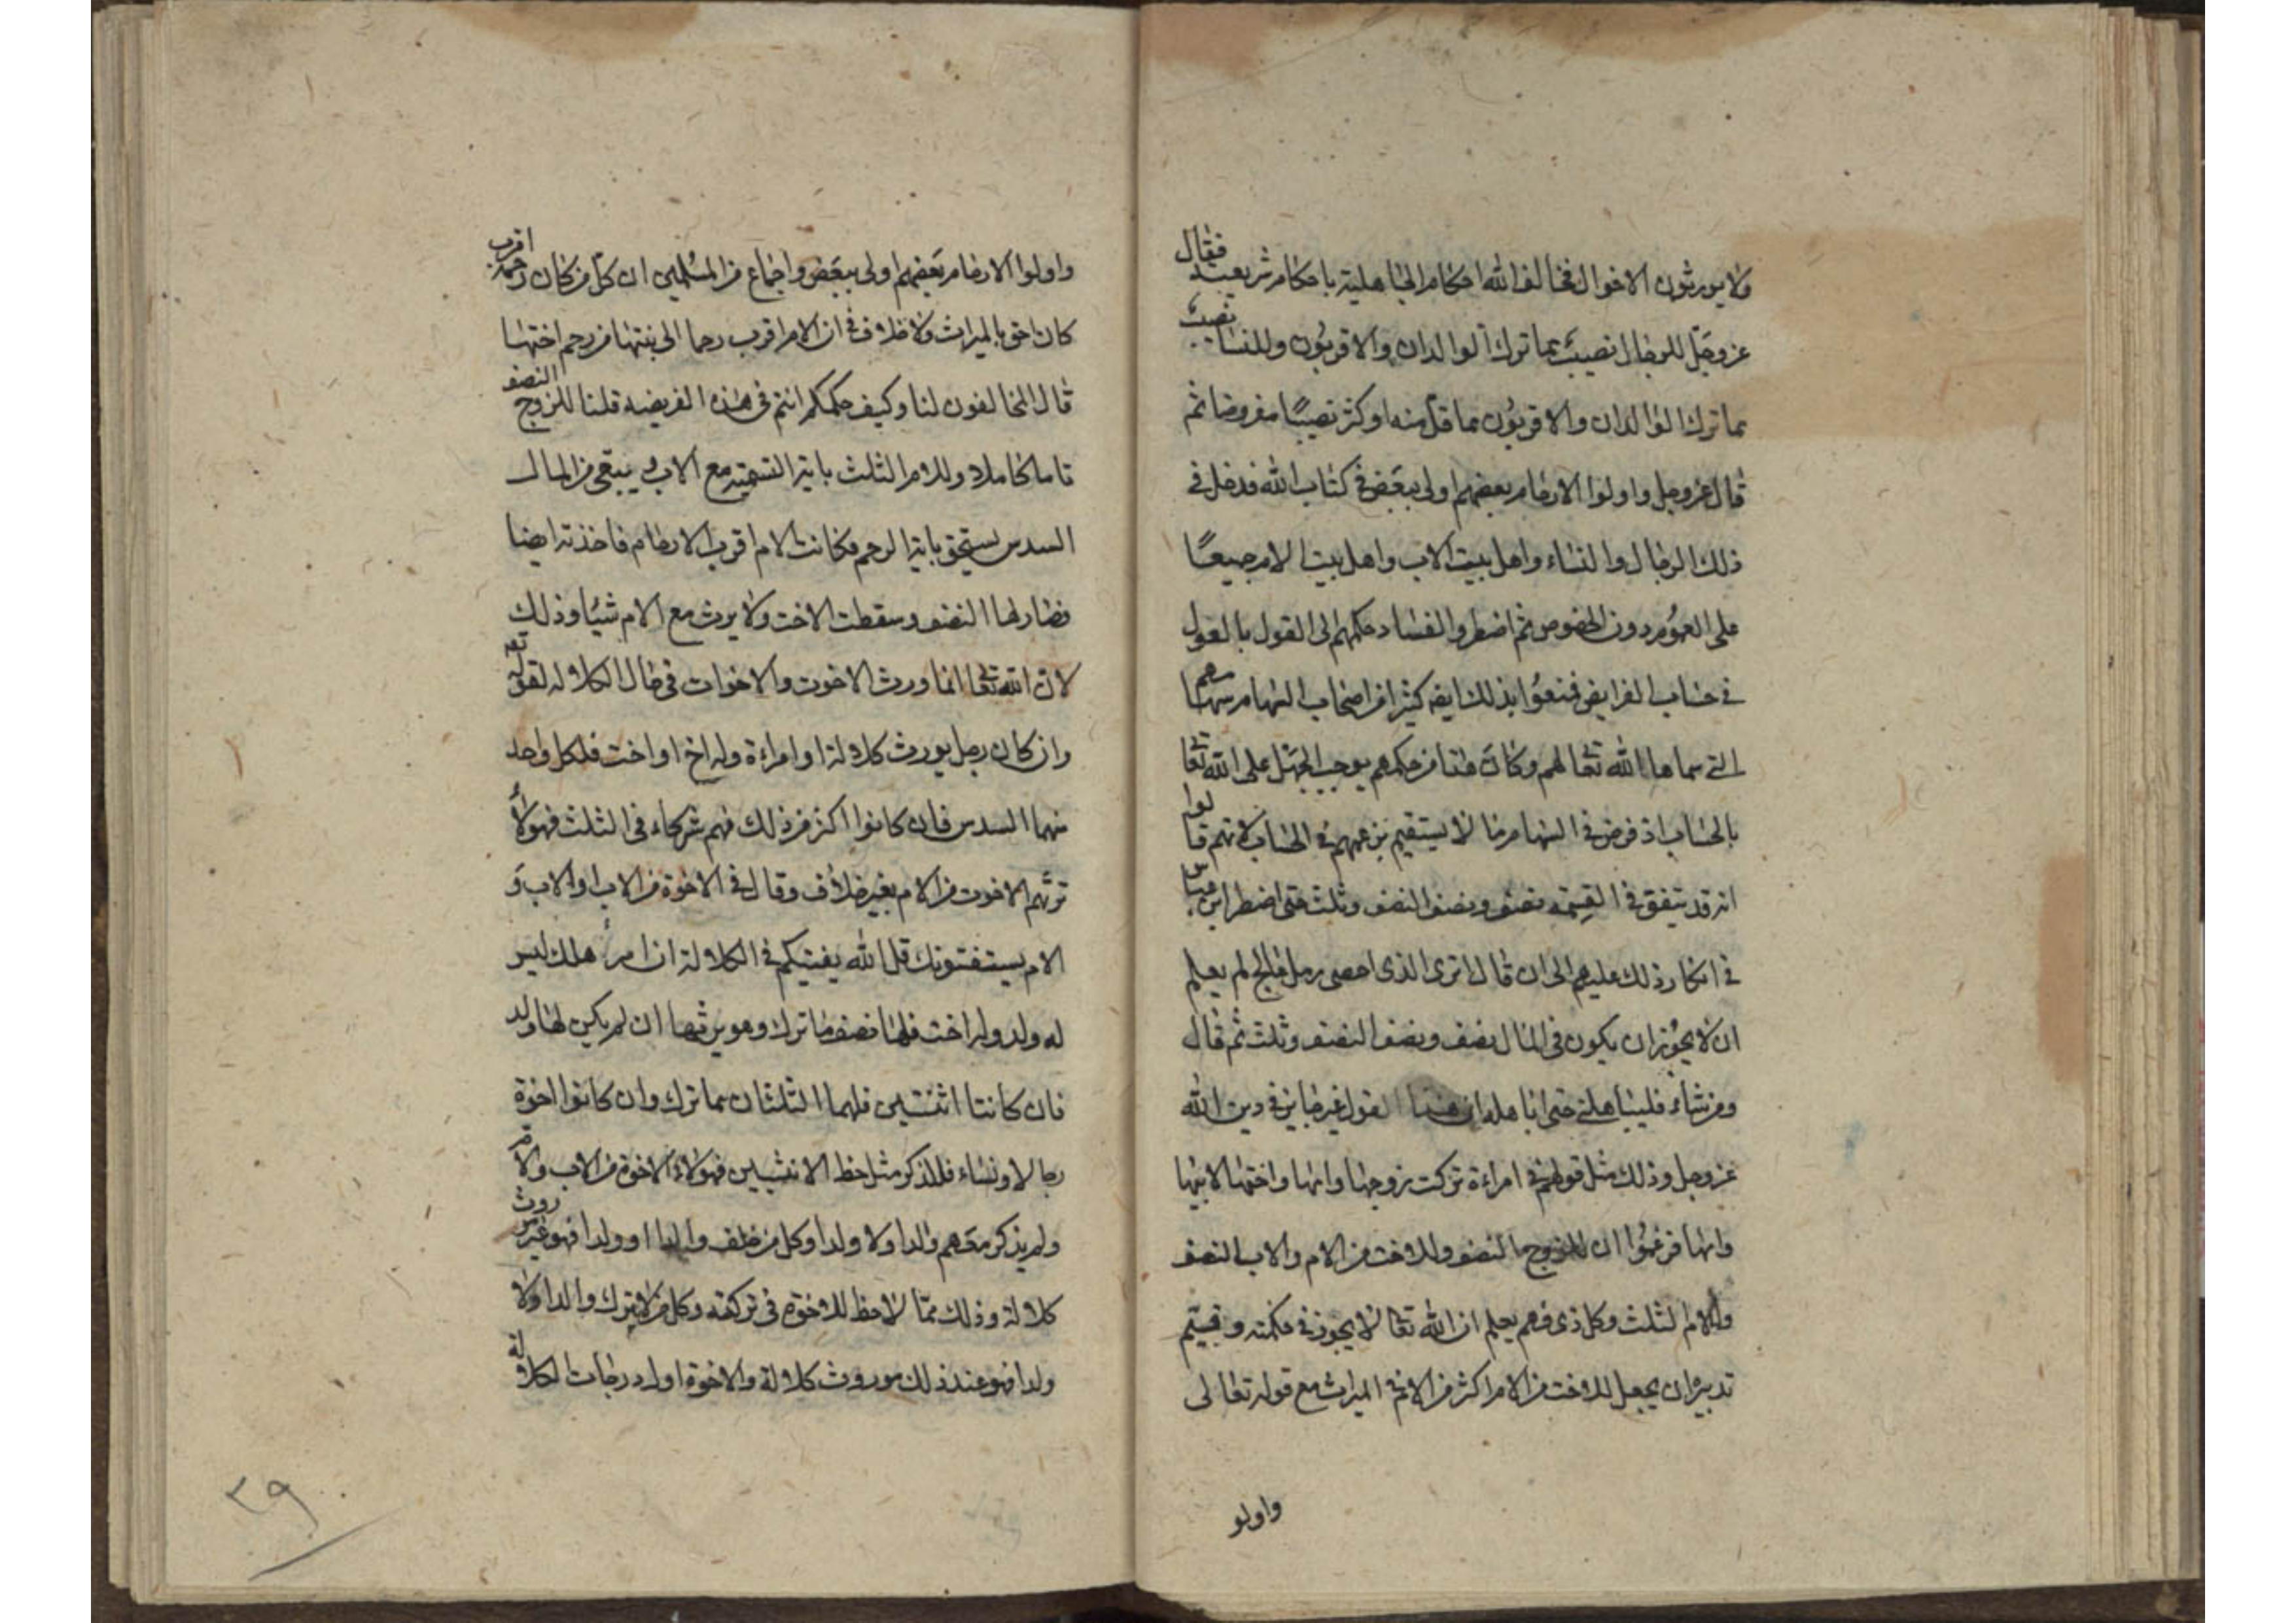 ولا يورثون الاخوال فخالف الله احكام الجاهلية باحكام شريعته فقال
عز وجل للرجال نصيب مما ترك الوالدان والاقربون وللنساء نصيب
مما ترك الوالدان والاقربون مما قل منه او كثر نصيبًا مفروضا ثم
قال عز وجل واولوا الارحام بعضهم اولى ببعض في كتاب الله فدخل في
ذلك الرجال والنساء واهل بيت الاب واهل بيت الام جميعًا
على العموم دون الخصوص ثم اضطر والفساد حكمهم الى القول بالعول
في حساب الفرايض فمنعوا بذلك ايضه كثيرا من اصحاب السهام سهامهم
التي سماها الله تعا لهم وكان هذا من حكمهم يوجب الجهل على الله تعا
بالحساب اذ فرض في السهام ما لا يستقيم بزعمهم في الحساب لانهم قالوا
انه قد يتفق في القسمه نصف ونصف النصف وثلث حتى اضطر ابن عباس
في انكار ذلك عليهم الى ان قال اترى الذى احصى رمل عالج لم يعلم
ان لا يجوز ان يكون في المال نصف ونصف النصف وثلث ثم قال
ومن شاء فليباهلني حتى اباهله ان هذا القول غير جايز في دين الله
عز وجل وذلك مثل قولهم في امراءة تركت زوجها وامها واختها لابيها
وامها فزعموا ان للزوج النصف وللاخت من الام والاب النصف
والام الثلث وكل ذى فهم يعلم ان الله تعا لا يجوز في حكمته
تدبيره ان يجعل للاخت من الام اكثر من الام في الميراث مع قوله تعالى
واولو
واولوا الارحام بعضهم اولى ببعض واجماع من المسلمين ان كل من كان اقرب رحمه
كان احق بالميراث ولا خلاف في ان الام اقرب رحما الى بنتها من رحم اختها
قال المخالفون لنا وكيف حكمكم انتم في هذه الفريضه قلنا للزوج النصف
تاما كاملا وللام الثلث باية التسمية مع الاب و يبقى من المال
السدس يستحق باية الرحم فكانت الام اقرب الارحام فاخذته ايضا
فصار لها النصف وسقطت الاخت ولا يرث مع الام شيئا وذلك
لان الله تعا انما ورث الاخوت والاخوات في حال الكلاله لقوله تعه
وان كان رجل يورث كلالة او امراءة وله اخ او اخت فلكل واحد
منهما السدس فان كانوا اكثر من ذلك فهم شركاء في الثلث فهولاء
ترثهم الاخوت من الام بغير خلاف وقال في الاخوة من الاب او الاب و
الام يستفتونك قل الله يفتيكم في الكلالة ان امرء هلك ليس
له ولد وله اخت فلها نصف ما ترك وهو يرثها ان لم يكن لها ولد
فان كانتا اثنتين فلهما الثلثان مما ترك وان كانوا اخوة
رجالا ونساء فللذكر مثل حظ الانثيين فهولاء الاخوة من الاب والام
ولم يذكر معهم والدا ولا ولدا وكل من خلف والدا او ولدا فهو غير موروث
كلالة وذلك مما لا حظ للاخوة في تركته وكل من لا يترك والدا ولا
ولدا فهو عند ذلك موروث كلالة والاخوة اول درجات الكلالة
٢٩